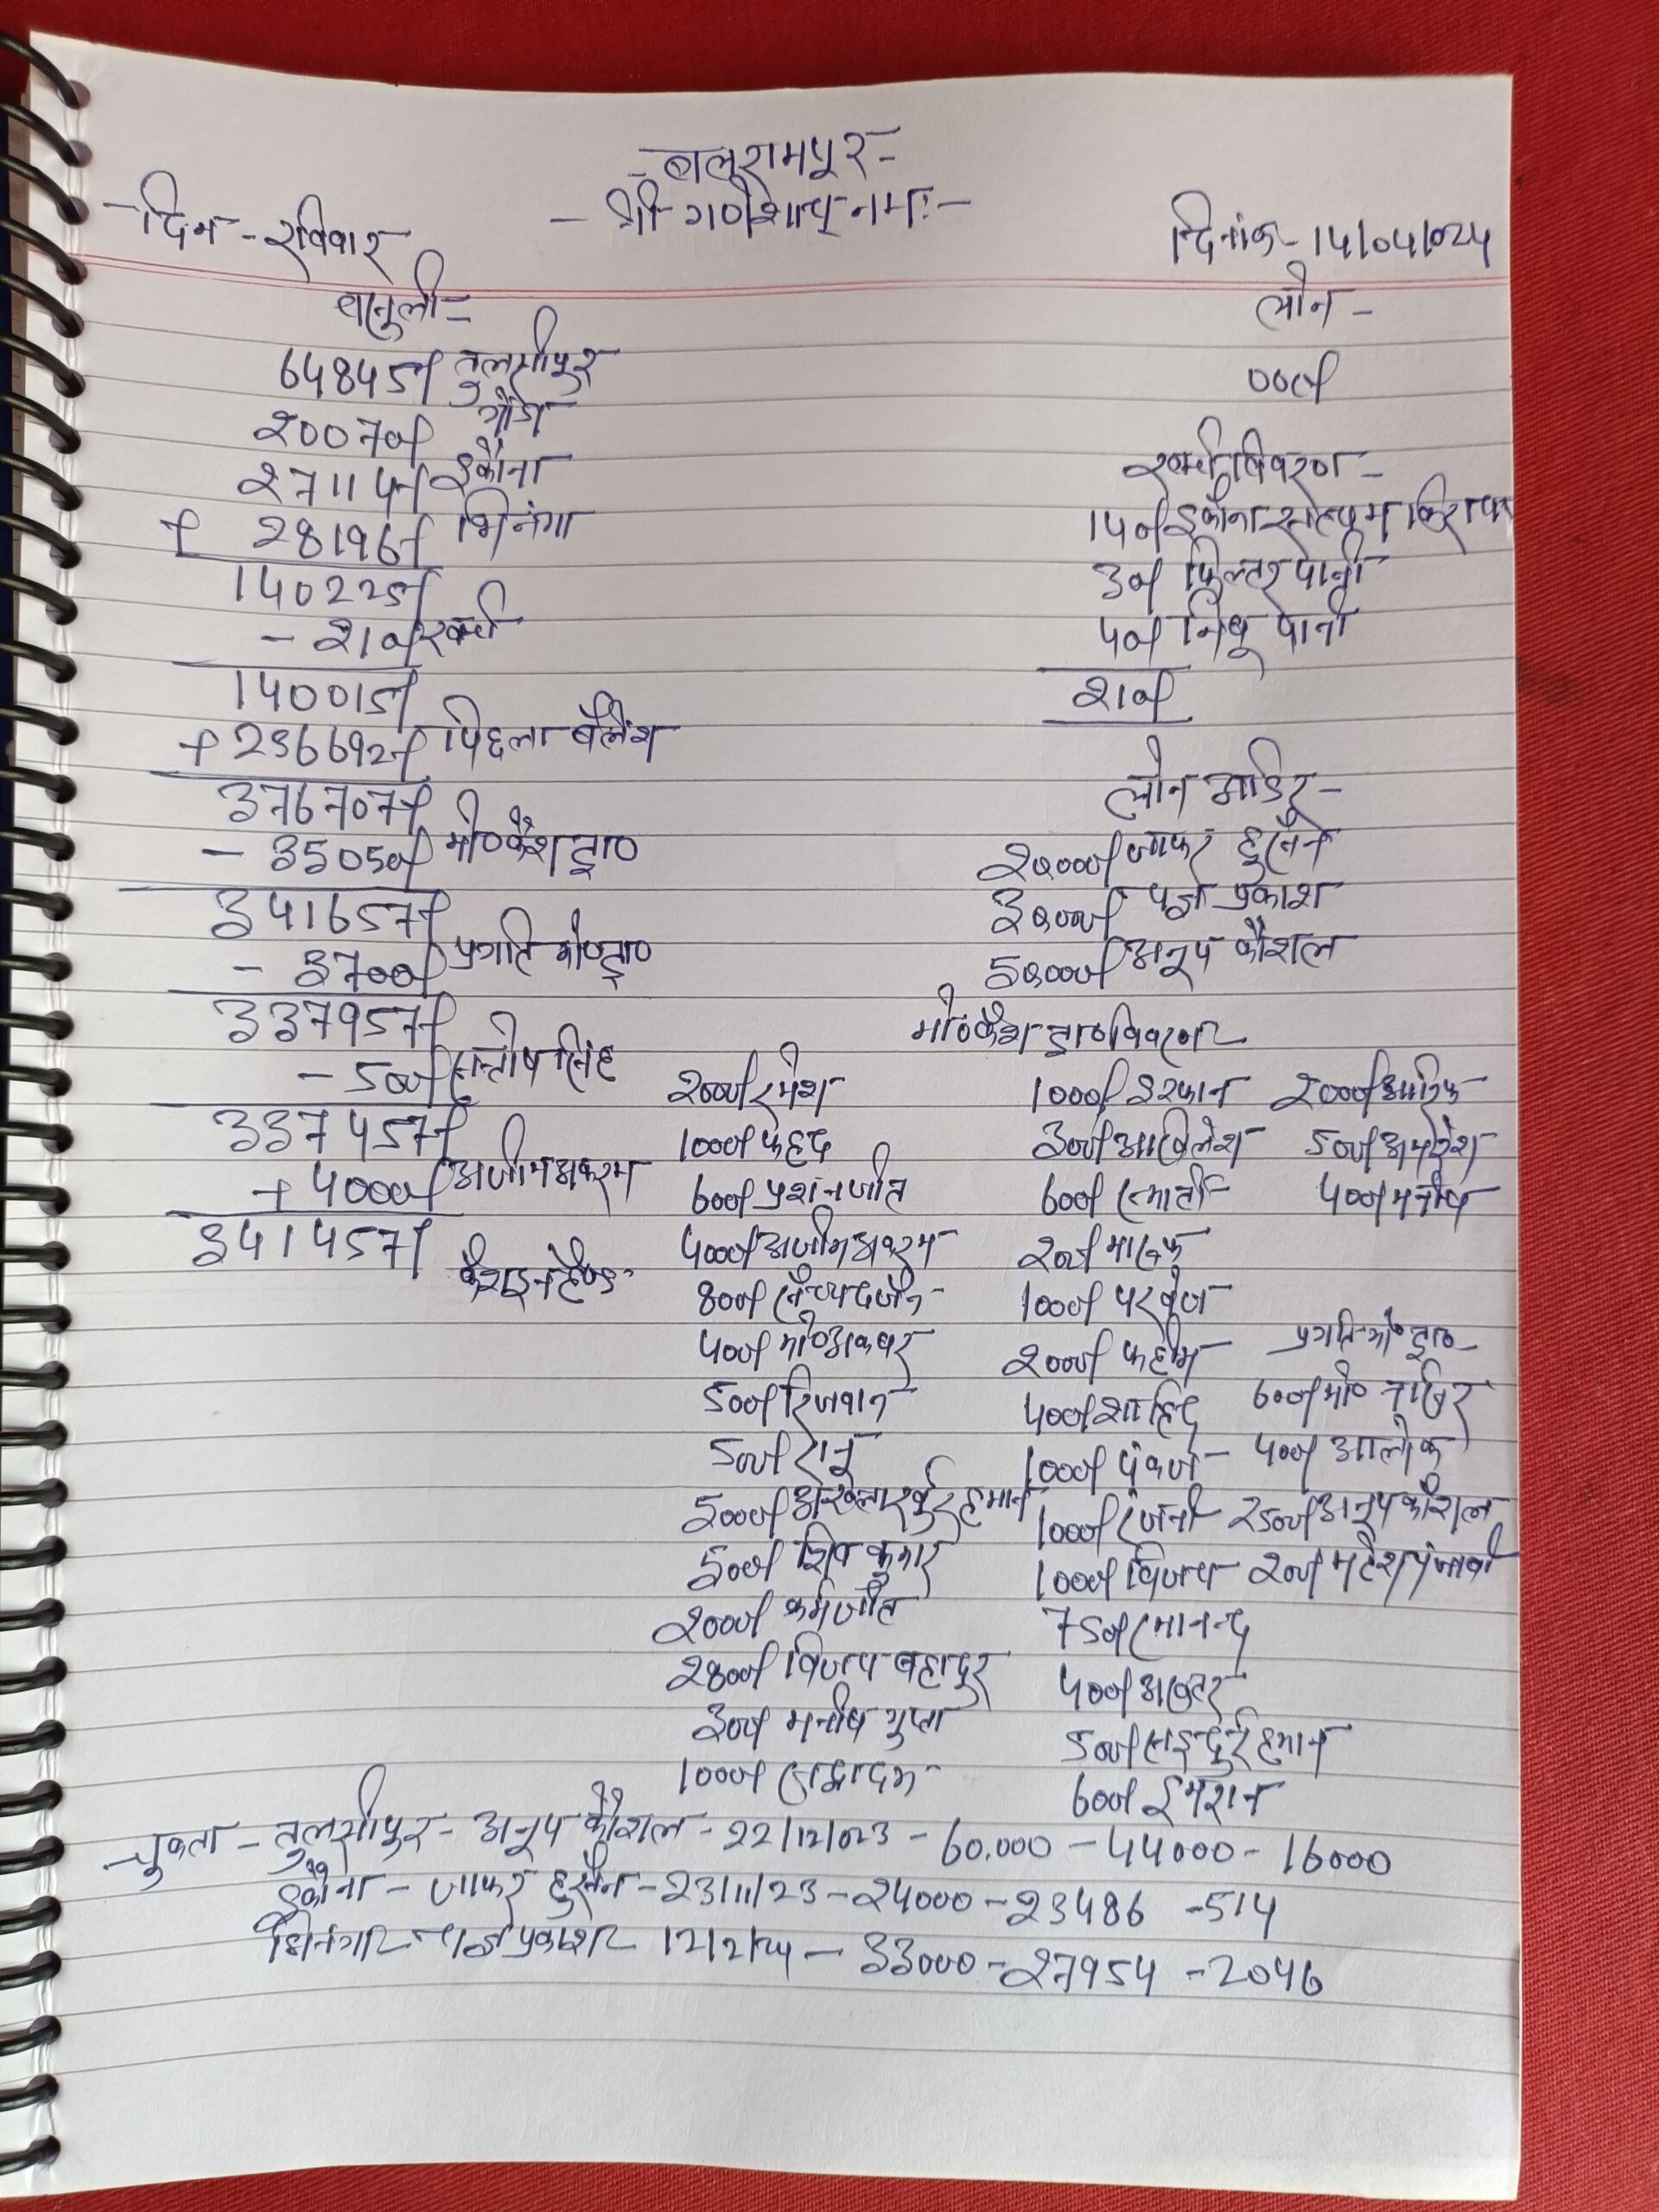 -बलरामपुर-
-श्री गणेशाय नमः-
दिन - रविवार
दिनांक - 14/04/024
वसुली-
64845/ तुलसीपुर
20070/ गोंडा
27114/ इकौना
+ 28196/ भिनंगा
140225/
- 210/ खर्चा
140015/
+ 236692/ पिछला बैलेंश
376707/
- 35050/ मो० कैश द्वा०
341657/
- 3700/ प्रगति मो० द्वा०
337957/
- 500/ सन्तोष सिंह
337457/
+ 4000/ अजीम अकरम
341457/ कैश इन हैण्ड
लोन -
00/
खर्चा विवरण -
140/ इकौना किराया
30/ फिल्टर पानी
40/ निंबू पानी
210/
लोन आर्डर-
20,000/ जाफर हुसैन
30,000/ प्रकाश
50,000/ अनूप कौशल
मो० कैश द्वा० विवरण-
2000/ रमेश
1000/ फहद
600/ प्रशनजीत
4000/ अजीम अकरम
800/
400/ मो० अकबर
500/ रिजवान
500/ रानू
5000/
500/ शिव कुमार
2000/ कर्मजीत
2800/ विजय बहादुर
300/ मनीष गुप्ता
1000/
1000/ इरफान
300/ अखिलेश
600/
200/
1000/ परवेज
2000/ फहीम
400/ शाहिद
1000/ पंकज
1000/ रजनी
1000/ विजय
750/ रमानन्द
400/ अख्तर
500/
600/ इमरान
2000/
500/ अमरेश
400/ मनीष
प्रगति मो० द्वा०
600/ मो०
400/ आलोक
2500/ अनूप कौशल
200/ महेश पंजाबी
चुकता - तुलसीपुर - अनूप कौशल - 22/12/023 - 60,000 - 44000 - 16000
इकौना - जाफर हुसैन - 23/11/23 - 24000 - 23486 - 514
भिनंगा - प्रकाश - 12/2/24 - 33000 - 27954 - 2046